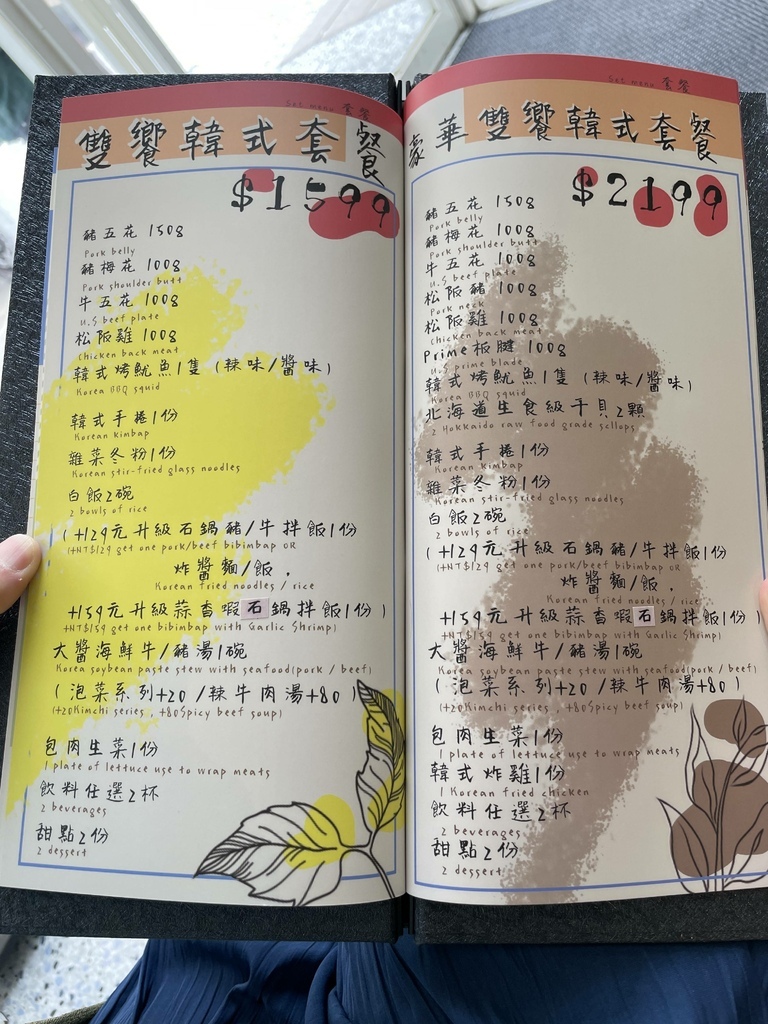 Set menu 套餐
雙饗韓式套餐
$1599
豬五花 150g
Pork belly
豬梅花 100g
Pork shoulder butt
牛五花 100g
U.S beef plate
松阪雞 100g
Chicken back meat
韓式烤魷魚1隻 (辣味/醬味)
Korea BBQ squid
韓式手捲1份
Korean kimbap
雜菜冬粉1份
Korean stir-fried glass noodles
白飯2碗
2 bowls of rice
(+129元升級石鍋豬/牛拌飯1份
(+NT$129 get one pork/beef bibimbap OR
炸醬麵/飯,
Korean fried noodles / rice
+159元升級蒜香蝦石鍋拌飯1份)
+NT$159 get one bibimbap with Garlic Shrimp)
大醬海鮮牛/豬湯1碗
Korea soybean paste stew with seafood(pork / beef)
(泡菜系列+20/辣牛肉湯+80)
(+20Kimchi series , +80Spicy beef soup)
包肉生菜1份
1 plate of lettuce use to wrap meats
飲料任選2杯
2 beverages
甜點2份
2 dessert
Set menu 套餐
豪華雙饗韓式套餐
$2199
豬五花 150g
Pork belly
豬梅花 100g
Pork shoulder butt
牛五花 100g
U.S beef plate
松阪豬 100g
Pork neck
松阪雞 100g
Chicken back meat
Prime板腱 100g
U.S prime blade
韓式烤魷魚1隻 (辣味/醬味)
Korea BBQ squid
北海道生食級干貝2顆
2 Hokkaido raw food grade scllops
韓式手捲1份
Korean kimbap
雜菜冬粉1份
Korean stir-fried glass noodles
白飯2碗
2 bowls of rice
(+129元升級石鍋豬/牛拌飯1份
(+NT$129 get one pork/beef bibimbap OR
炸醬麵/飯,
Korean fried noodles / rice
+159元升級蒜香蝦石鍋拌飯1份)
+NT$159 get one bibimbap with Garlic Shrimp)
大醬海鮮牛/豬湯1碗
Korea soybean paste stew with seafood(pork / beef)
(泡菜系列+20/辣牛肉湯+80)
(+20Kimchi series , +80Spicy beef soup)
包肉生菜1份
1 plate of lettuce use to wrap meats
韓式炸雞1份
1 Korean fried chicken
飲料任選2杯
2 beverages
甜點2份
2 dessert